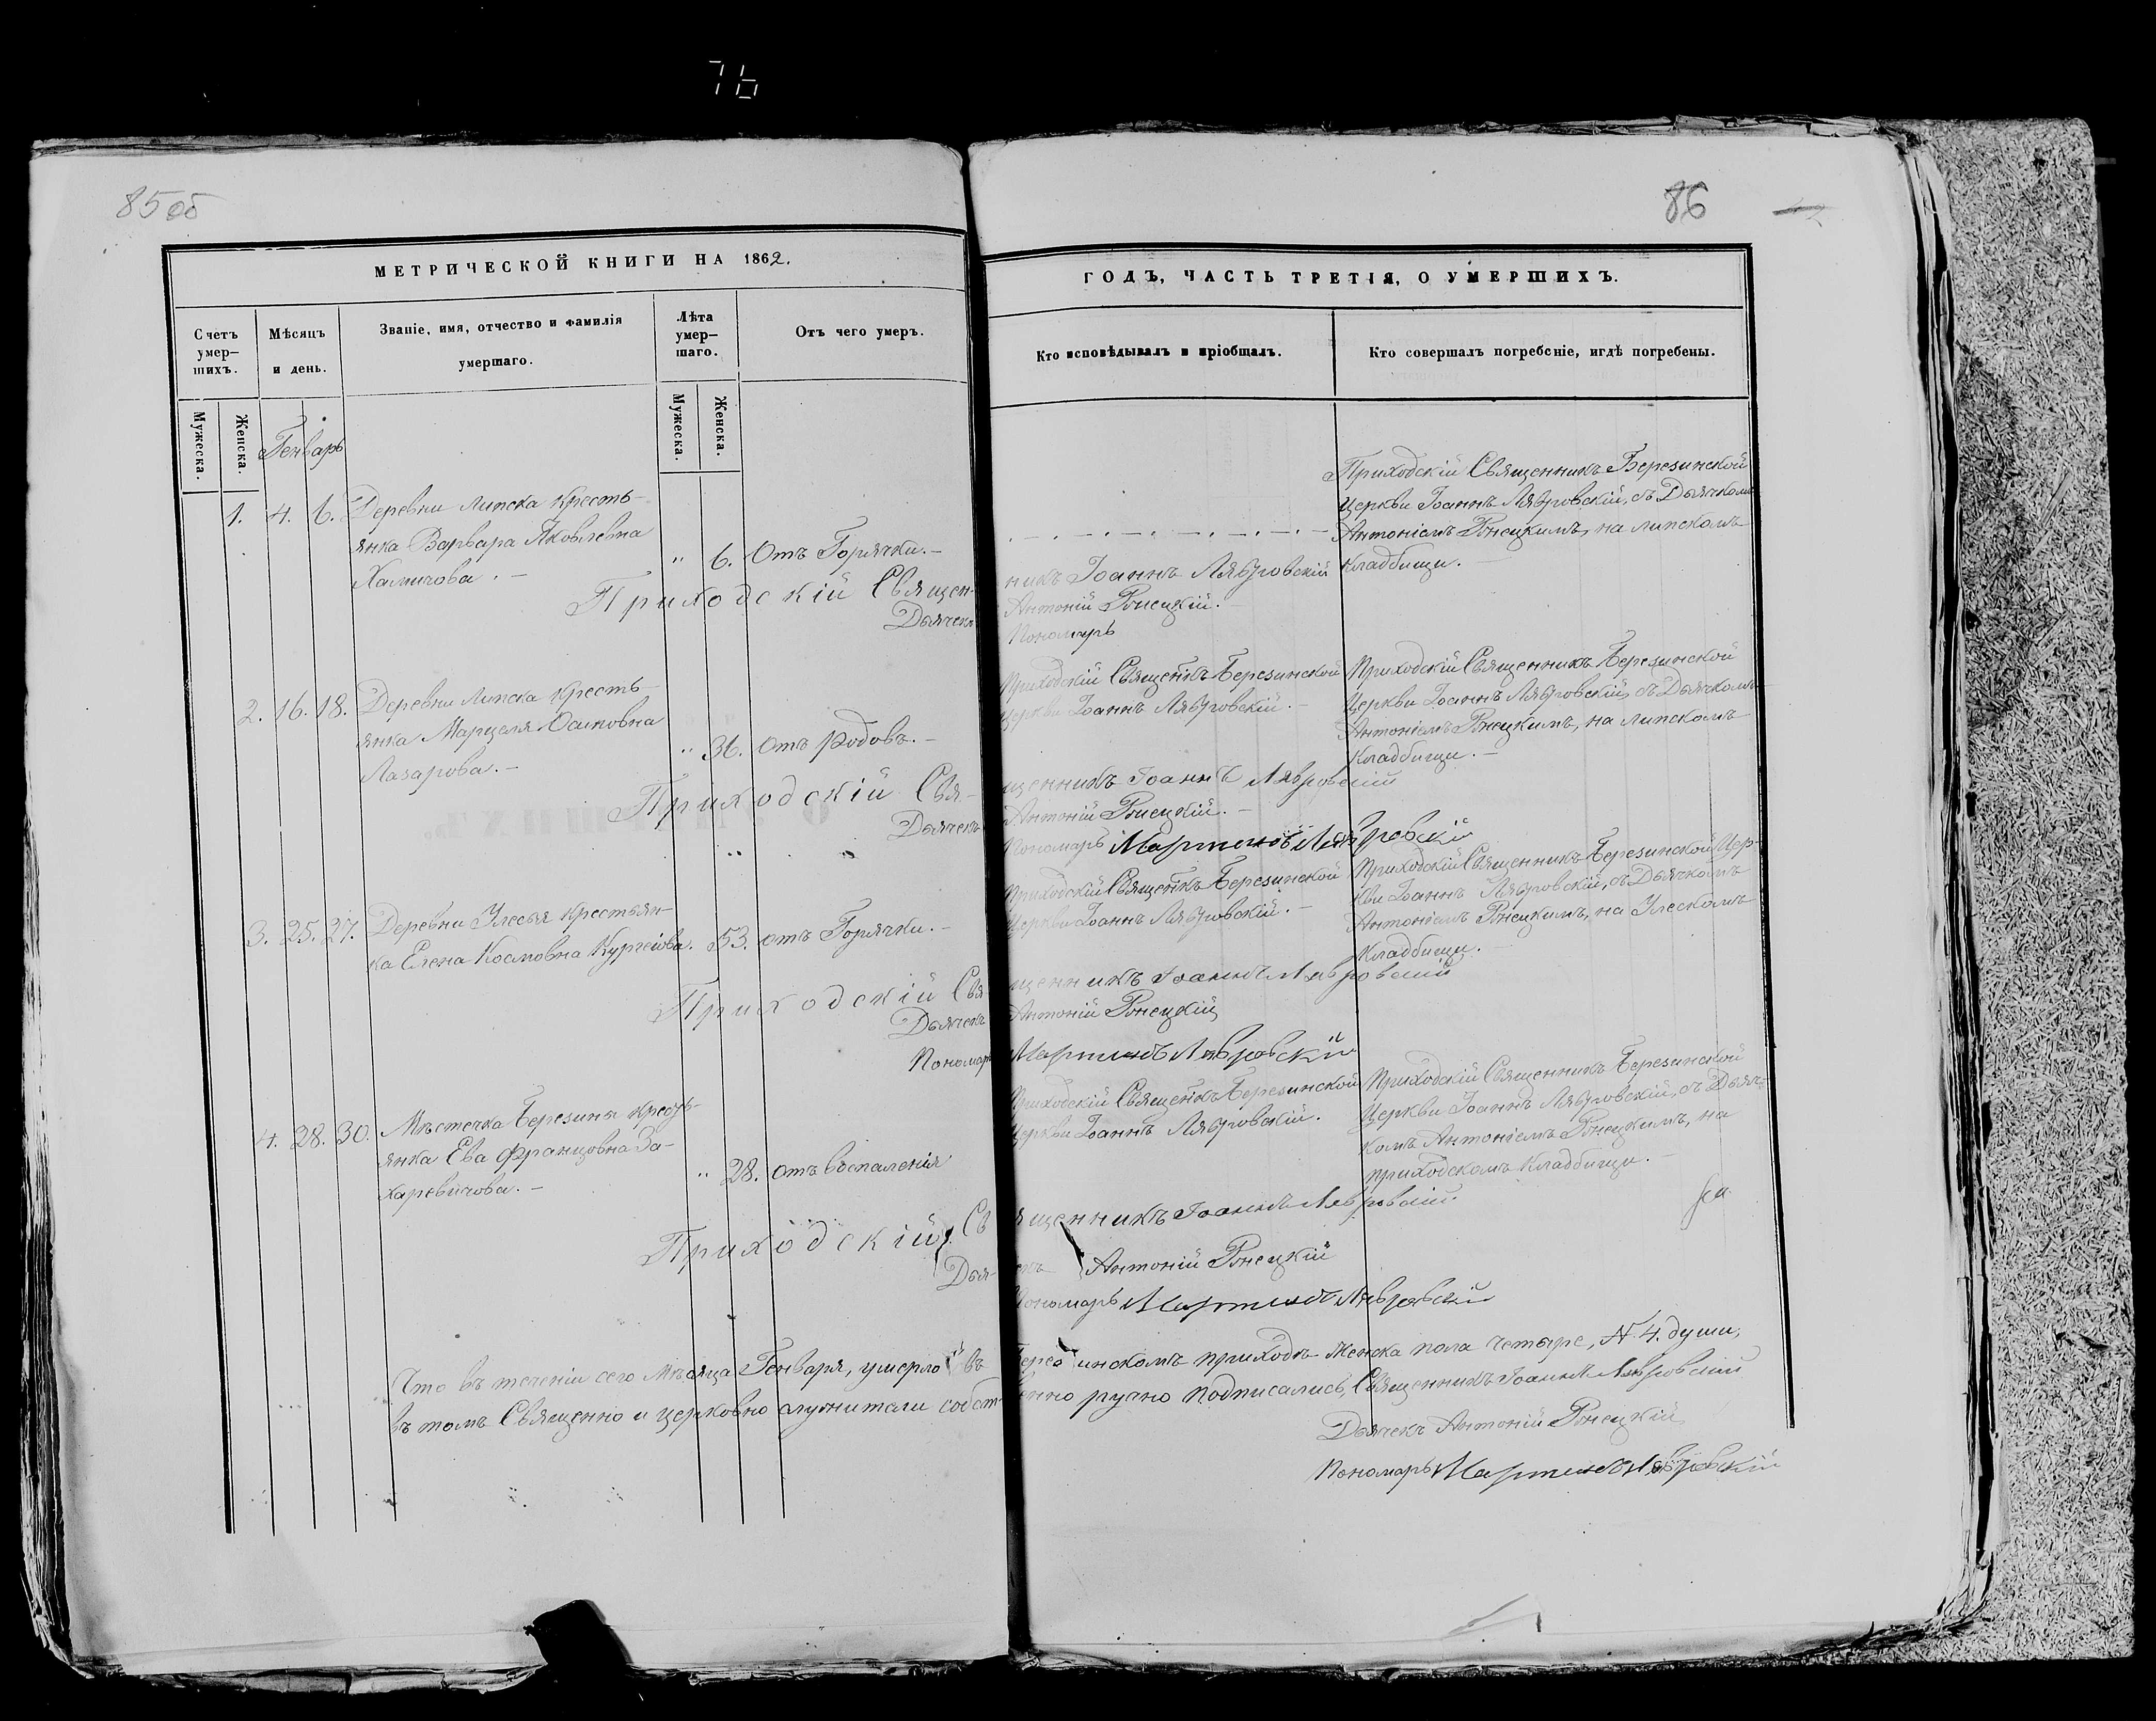 76
85 об
86
МЕТРИЧЕСКОЙ КНИГИ НА 1862.
ГОДЪ, ЧАСТЬ ТРЕТІЯ, О УМЕРШИХЪ.
Счетъ умер-шихъ.
Мѣсяцъ и день.
Званіе, имя, отчество и фамилія умершаго.
Лѣта умер-шаго.
Отъ чего умеръ.
Кто исповѣдывалъ и пріобщалъ.
Кто совершалъ погребеніе, и гдѣ погребены.
Мужеска.
Женска.
Мужеска.
Женска.
Генварь
1. 4. 6. Деревни Липска кресть-
янка Варвара Яковлевна
" 6. Отъ Горячки.
Приходскій Священникъ Березинской
Церкви Іоаннъ Лявровскій, съ Дьячкомъ
Антоніемъ Рѣнецкимъ, на липскомъ
Кладбищи.
Приходскій Священ-
никъ Іоаннъ Лявровскій
Дьячекъ
Антоній Рѣнецкій.
Пономарь
2. 16. 18. Деревни Липска кресть-
янка Марцеля Осиповна
Лазарова.
" 36. Отъ Родовъ.
Приходскій Священкъ Березинской
Церкви Іоаннъ Лявровскій.
Приходскій Священникъ Березинской
Церкви Іоаннъ Лявровскій, съ Дьячкомъ
Антоніемъ Рѣнецкимъ, на липскомъ
Кладбищи.
Приходскій Свя-
щенникъ Іоаннъ Лявровскій
Дьячекъ
Антоній Рѣнецкій.
Пономарь Мартинъ Лявровскій
3. 25. 27. Деревни Улесья крестьян-
ка Елена Космовна
53. отъ Горячки.
Приходскій Священкъ Березинской
Церкви Іоаннъ Лявровскій.
Приходскій Священникъ Березинской Цер-
кви Іоаннъ Лявровскій, съ Дьячкомъ
Антоніемъ Рѣнецкимъ, на Улескомъ
Кладбищи.
Приходскій Свя
щенникъ Іоаннъ Лявровскій
Дьячекъ
Антоній Рѣнецкій
Пономарь
Мартинъ Лявровскій
4. 28. 30. Мѣстечка Березины кресть-
янка Ева Францовна За-
харевичова.
" 28. отъ воспаленія
Приходскій Священкъ Березинской
Церкви Іоаннъ Лявровскій.
Приходскій Священникъ Березинской
Церкви Іоаннъ Лявровскій, съ Дьяч-
комъ Антоніемъ Рѣнецкимъ, на
приходскомъ Кладбищи.
Приходскій Св
ященникъ Іоаннъ Лявровскій.
Дья-
екъ Антоній Рѣнецкій
Пономарь Мартинъ Лявровскій
Что въ теченіи сего Мѣсяца Генваря, умерло въ
Березинскомъ приходѣ Женска пола четыре, N 4. души,
въ томъ Священно и церковно служители собст-
венно ручно подписались, Священникъ Іоаннъ Лявровскій
Дьячекъ Антоній Рѣнецкій
Пономарь Мартинъ Лявровскій